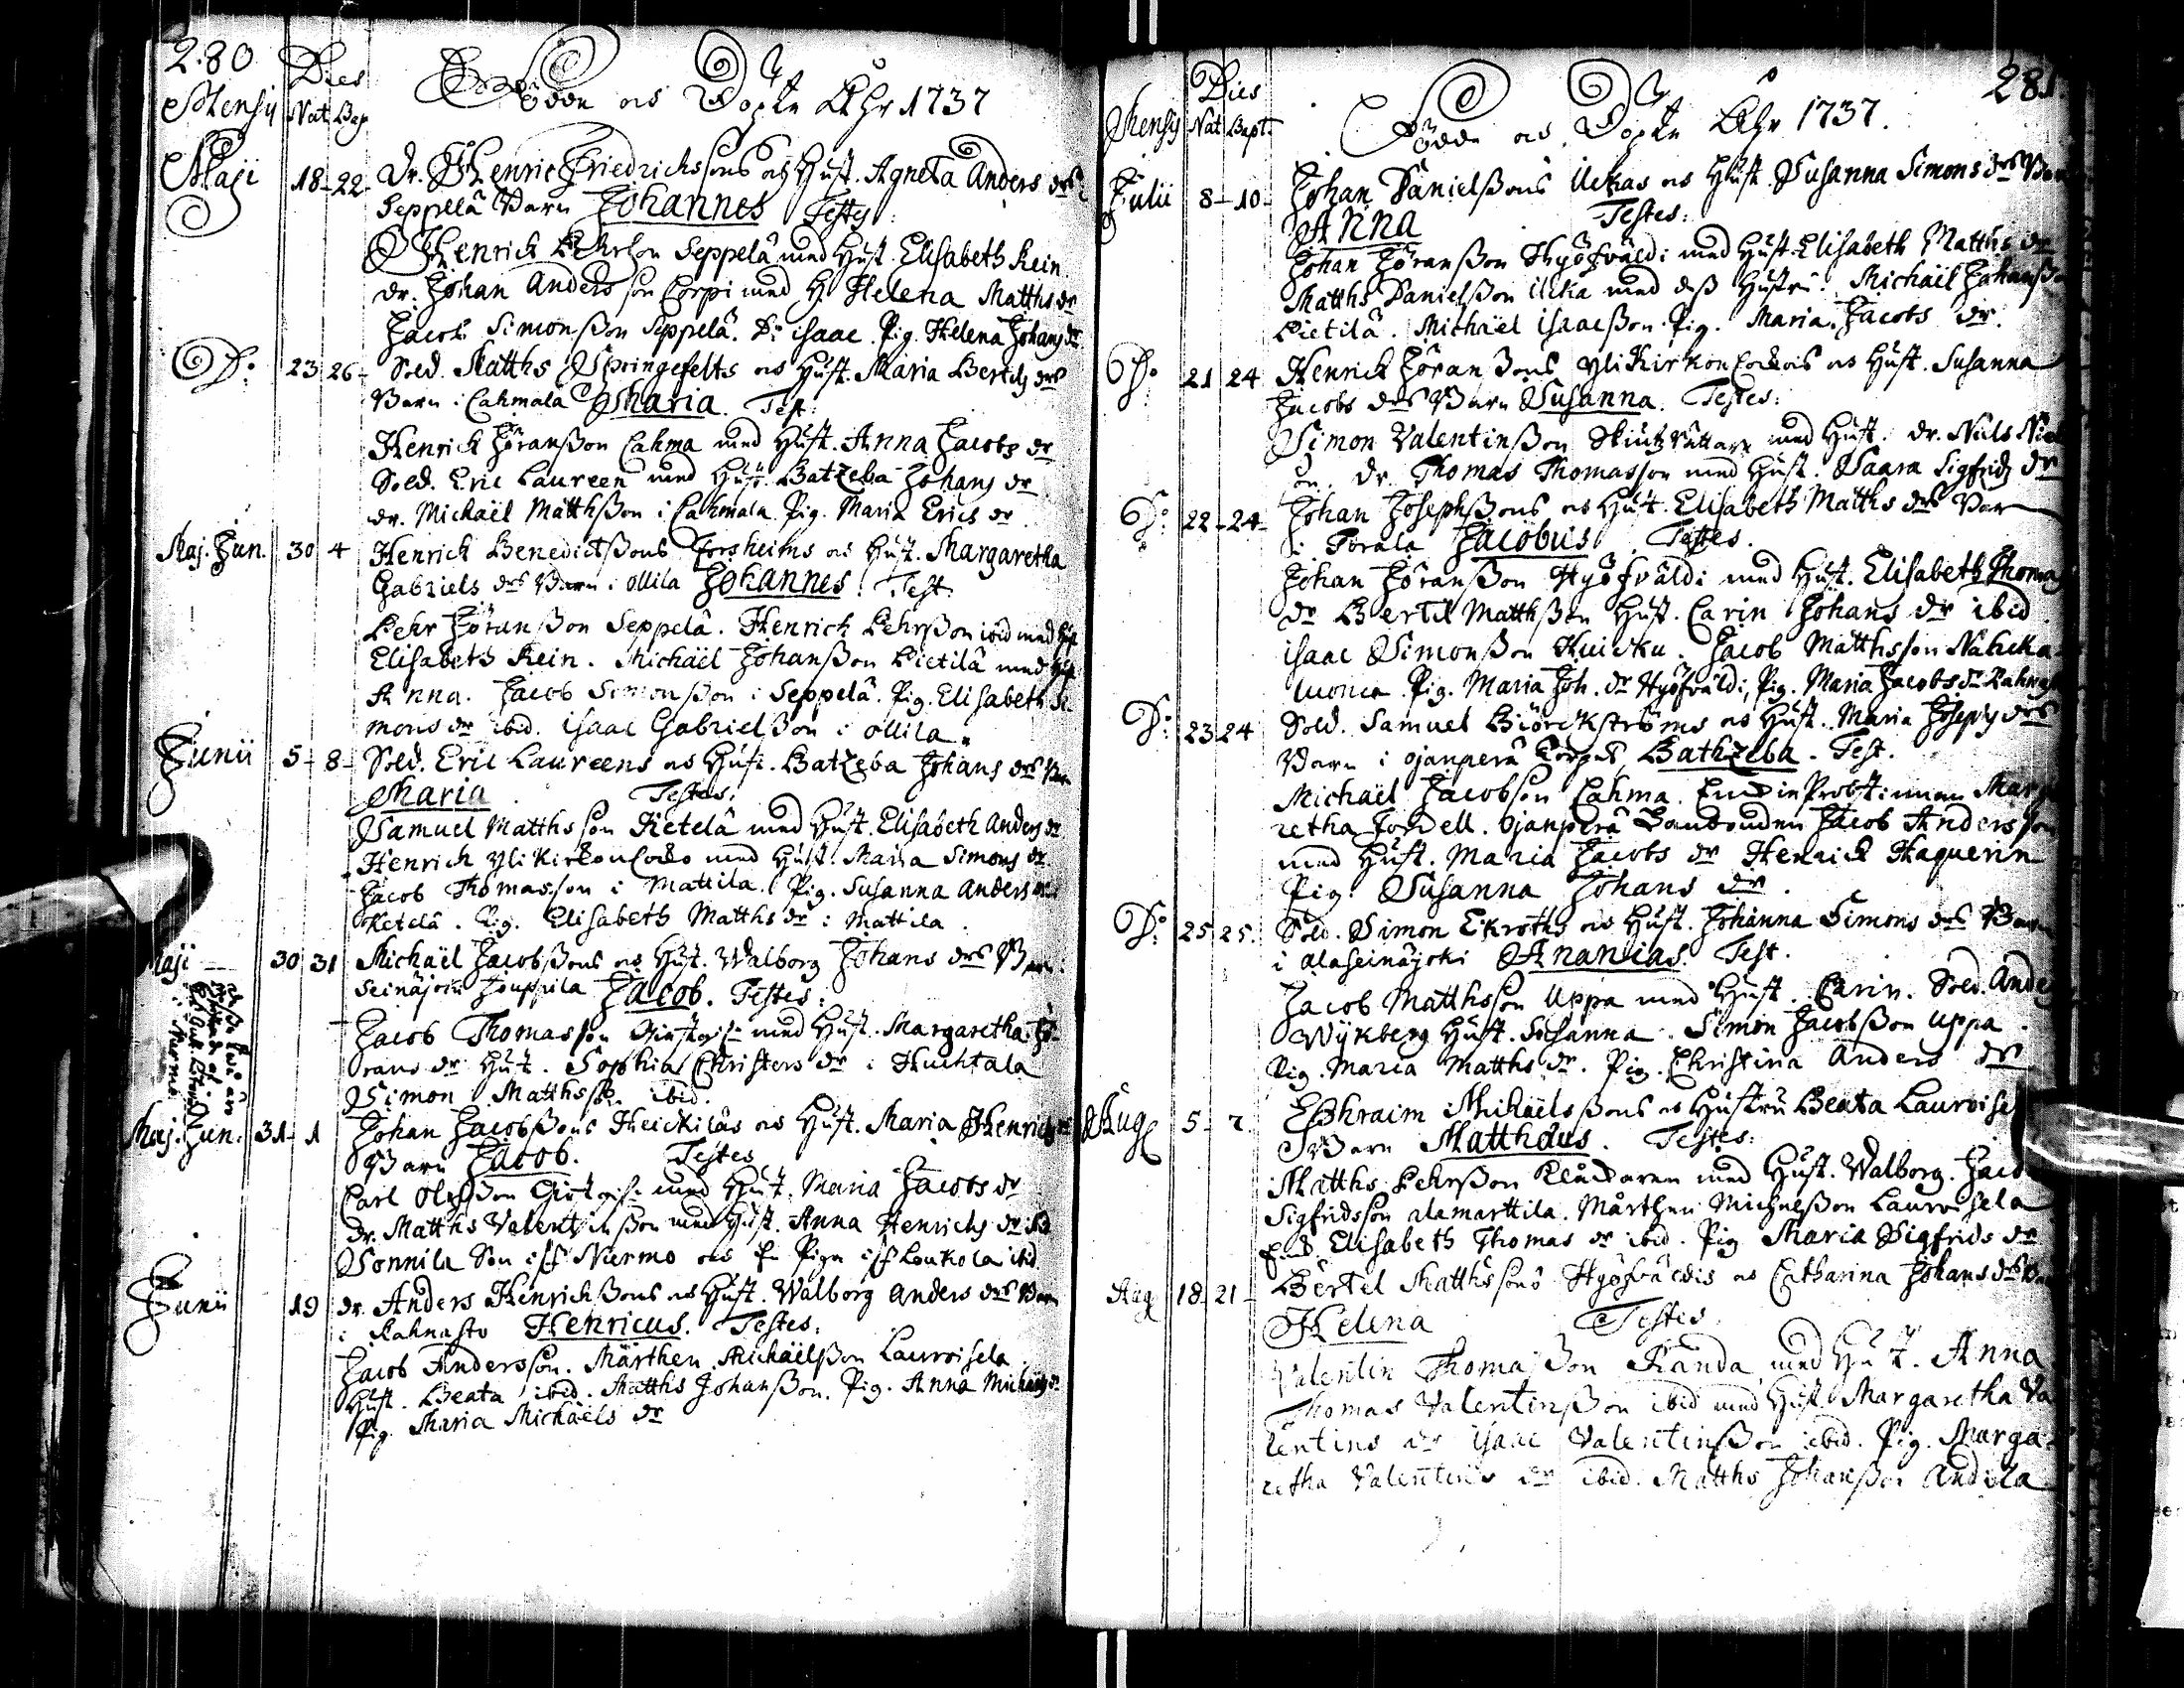 280
Dies
Mensis Nat. Bap.
Födde och Döpte Åhr 1737
Maji 18-22- dr. Henric Friedrichssons och Hust. Agneta Anders drs
Seppelä Barn Johannes Testes:
Henrich Pehrson Seppelä med Hust. Elisabeth Rein
dr. Johan Andersson Corpi med H. Helena Matths dr
Jacob Simonsson Seppelä. Dr. isaac. Pig. Helena Johans dr
D: 23 26- Sold. Matths Springefelts och Hust. Maria Bertils drs
Barn i Cahmala Maria. Test:
Henrich Jöranßon Cahma med Hust. Anna Jacobs dr
Sold. Eric Laureen med Hust. Batzeba Johans dr
dr. Michaël Matthßon i Cahmala. Pig. Maria Erics dr
Maj. Jun. 30 4 Henrich Benedictßons Forsheims och Hust. Margaretha
Gabriels drs Barn i ollila Johannes. Test.
Pehr Jöranßon Seppelä. Henrich Pehrßon ibid med Hust
Elisabeth Rein. Michaël Johanßon Pietilä med Hust
Anna. Jacob Simonßon i Seppelä. Pig. Elisabeth Si-
mons dr ibid. isaac Gabrielßon i ollila.
Junii 5- 8- Sold. Eric Laureens och Hust. Batzeba Johans drs Barn
Maria Testes:
Samuel Matthsson Ketelä med Hust. Elisabeth Anders dr
Henrich ylikirkon med Hust. Maria Simons dr
Jacob Thomasson i Mattila. Pig. Susanna Anders dr
Ketelä. Pig. Elisabeth Matths dr i Mattila.
Maji 30 31 Michaël Jacobßons och Hust. Walborg Johans drs Barn
Seinäjoki Jouppila Jacob. Testes:
Jacob Thomasson med Hust. Margaretha Jö-
rans dr Hust. Sophia Christers dr i Huhtala
Simon Matthsson ibid.
Maj. Jun. 31- 1 Johan Jacobßons Heickiläs och Hust. Maria Henrichs
Barn Jacob. Testes
Carl med Hust. Maria Jacobs dr
dr. Matths Valentinßon med Hust. Anna Henrichs dr ibid
Sonnila Son Niermo och Pigan Loukola ibid
Junii 19 dr. Anders Henrichßons och Hust. Walborg Anders drs Barn
i Rahnasto Henricus. Testes:
Jacob Andersson. Mårthen Michaëlßon Lauroisela
Hust. Beata ibid. Matths Johanßon. Pig. Anna Michaëls dr
Pig. Maria Michaëls dr
281
Dies
Mensis Nat. Bapt.
Födde och Döpte Åhr 1737.
Julii 8-10- Johan Danielßons ilckas och Hust. Susanna Simons drs Barn
Anna Testes:
Johan Jöranßon Hyöfväldi med Hust. Elisabeth Matths dr
Matths Danielßon ilcka med deß Hustru. Michaël Johanßon
Pietilä. Michaël isaacßon. Pig. Maria Jacobs dr.
D: 21 24 Henrich Jöranßons ylikirkon och Hust. Susanna
Jacobs drs Barn Susanna. Testes:
Simon Valentinßon med Hust. dr. Nils
dr. Thomas Thomasson med Hust. Saara Sigfrids dr
D: 22-24- Johan Josephßons och Hust. Elisabeth Matths drs Barn
i Törälä Jacobus. Testes.
Johan Jöranßon Hyöfväldi med Hust. Elisabeth Thomas
dr Bertil Matthßon Hust. Carin Johans dr ibid
isaac Simonßon Huicku. Jacob Matthsson
Pig. Maria Joh. dr Hyöfväldi, Pig. Maria Jacobs dr Rahnas
D: 23 24 Sold. Samuel Biörckströms och Hust. Maria Josephs drs
Barn i Ojanperä Torpet Bathzeba. Test.
Michaël Jacobson Cahma. Probstinnan Marga
retha Fordell. Ojanperä Jacob Andersson
med Hust. Maria Jacobs dr Henrich Haquerin
Pig. Susanna Johans dr.
D: 25 25. Sold. Simon Ekroths och Hust. Johanna Simons drs Barn
i Alaseinäjoki Ananias. Test.
Jacob Matthsson Uppa med Hust. Carin. Sold. Anders
Wykberg Hust. Susanna. Simon Jacobßon Uppa.
Pig. Maria Matths dr. Pig. Christina Anders dr
Aug 5- 7. Ephraim Michaëlsßons och Hustru Beata Lauroisela
Barn Matthæus. Testes:
Matths Pehrßon Klåckaren med Hust. Walborg. Jacob
Sigfridsson alamarttila. Mårthen Michaelßon Lauroisela
Elisabeth Thomas dr ibid. Pig Maria Sigfrids dr
Aug 18-21- Bertel Matthssons Hyöfväldis och Catharina Johans drs Barn
Helena Testes.
Valentin Thomaßon Randa med Hust. Anna
Thomas Valentinßon ibid med Hust Margaretha Va
lentins dr isaac Valentinßon ibid. Pig. Marga-
retha Valentins dr ibid. Matths Johanßon Andila